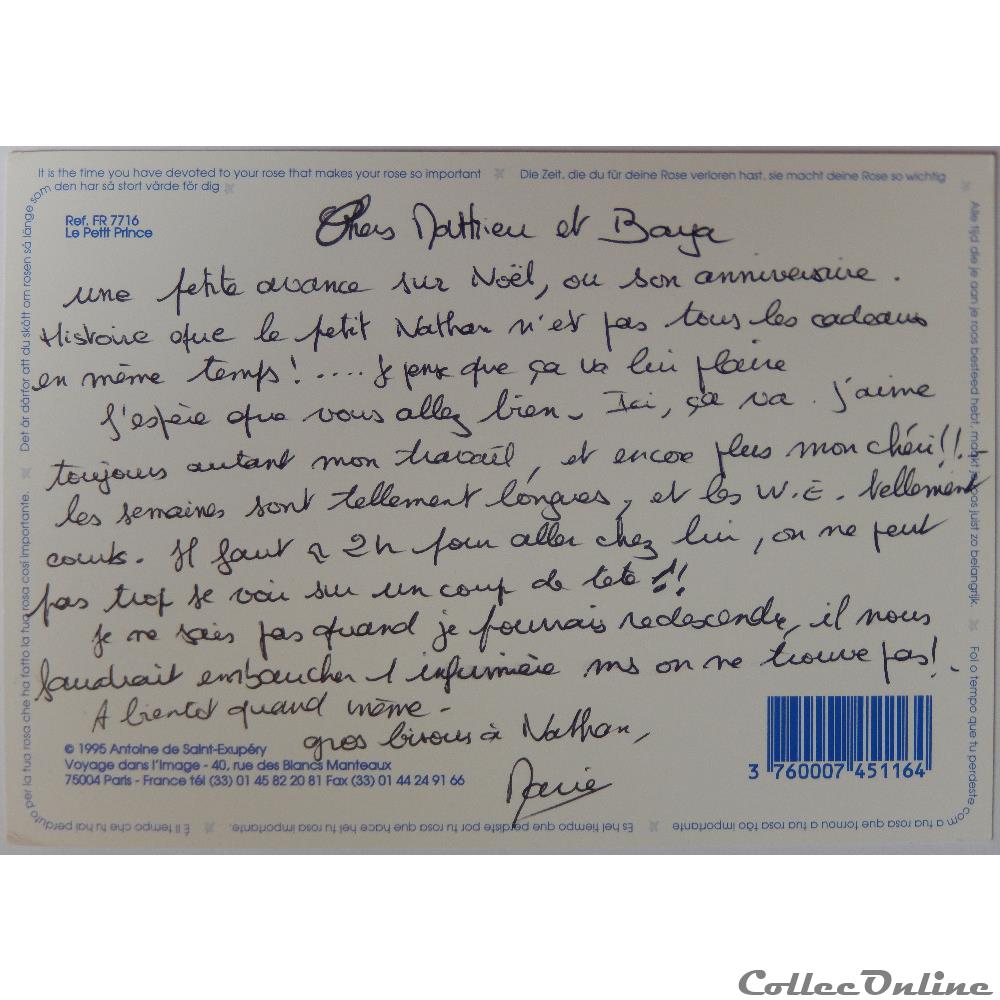 It is the time you have devoted to your rose that makes your rose so important
Die Zeit, die du für deine Rose verloren hast, sie macht deine Rose so wichtig
Alle tijd die je aan je roos besteed hebt, maakt je roos juist zo belangrijk.
Foi o tempo que tu perdeste com a tua rosa que tornou a tua rosa tão importante
Es hel tiempo que perdiste por tu rosa que hace que hel tu rosa sea importante.
È il tempo che tu hai perduto per la tua rosa che ha fatto la tua rosa così importante.
Det är därför att du skött om rosen så länge som
den har så stort värde för dig
Ref. FR 7716
Le Petit Prince
Chers Matthieu et Baya
une petite avance sur Noël, ou son anniversaire.
Histoire que le petit Nathan n'et pas tous les cadeaux
en même temps! .... Je pense que ça va lui plaire
J'espère que vous allez bien - Ici, ça va. J'aime
toujours autant mon travail, et encore plus mon chéri!! -
les semaines sont tellement longues, et les W.E. tellement
courts. Il faut 2h pour aller chez lui, on ne peut
pas trop se voir sur un coup de tete!!
Je ne sais pas quand je pourrais redescendre, il nous
faudrait embaucher 1 infirmière ms on ne trouve pas! -
A bientot quand même -
gros bisous à Nathan,
Marie
© 1995 Antoine de Saint-Exupéry
Voyage dans l'Image - 40, rue des Blancs Manteaux
75004 Paris - France tél (33) 01 45 82 20 81 Fax (33) 01 44 24 91 66
3 760007 451164
CollecOnline